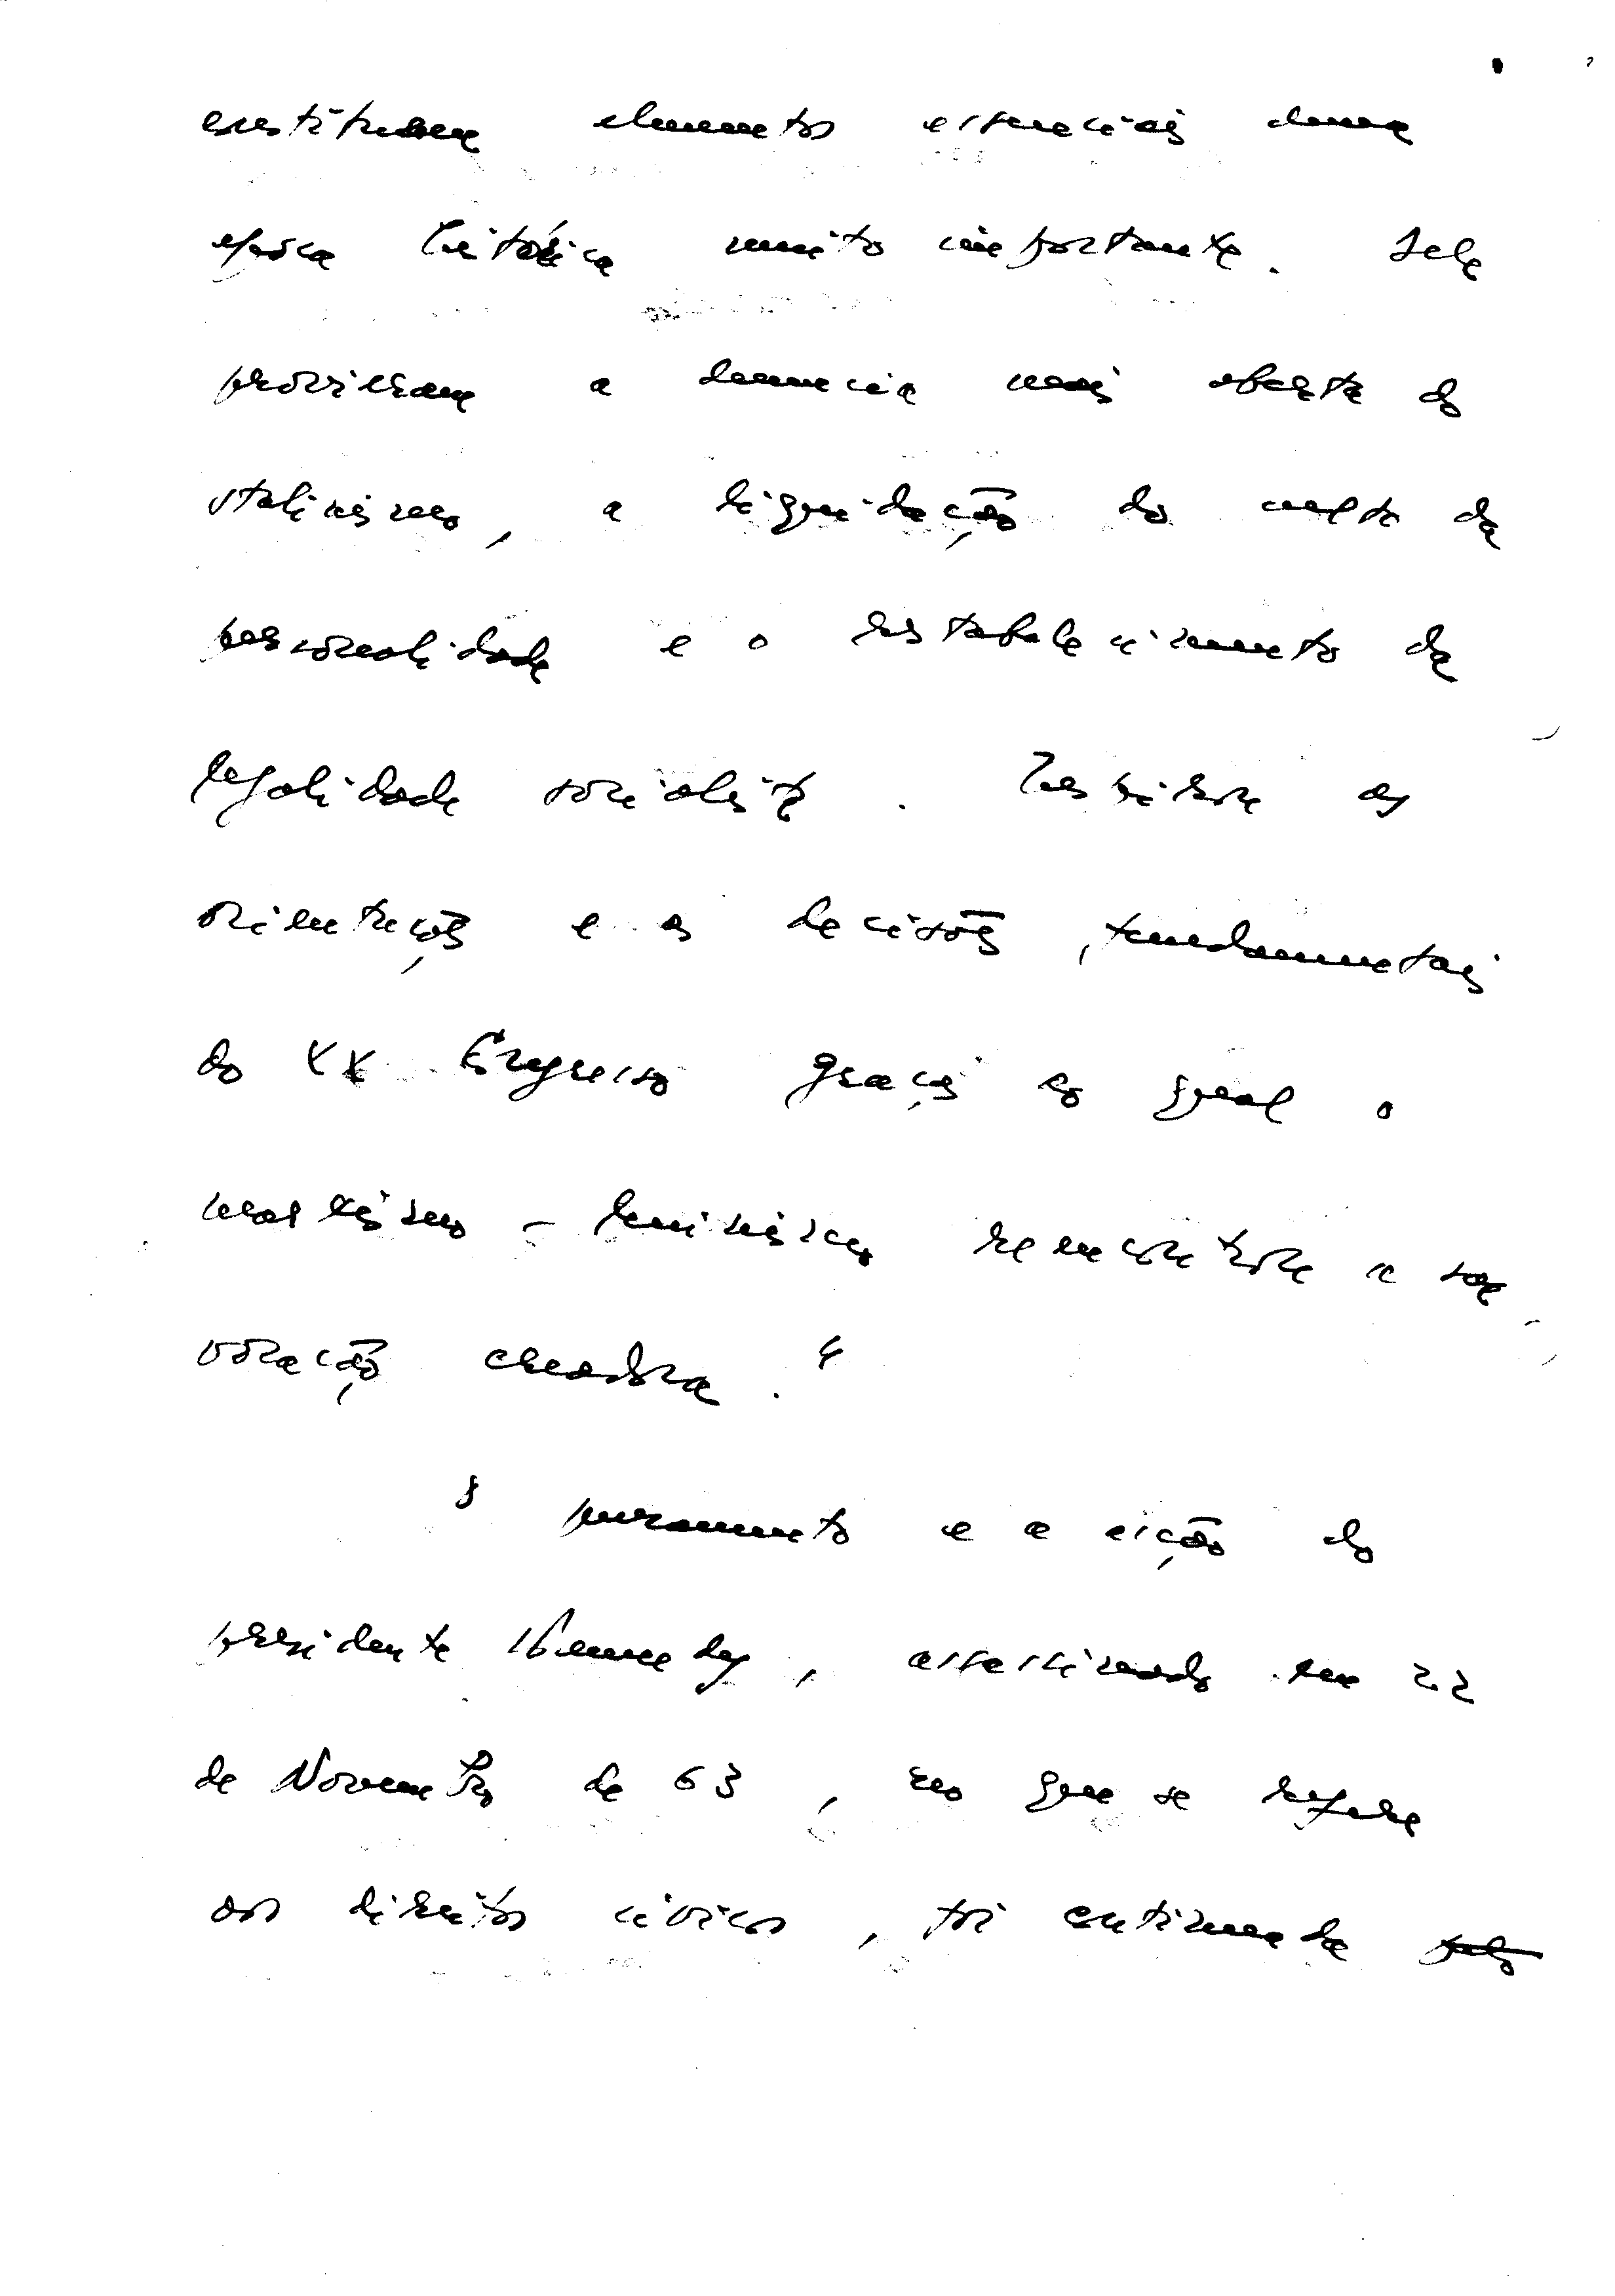 constituem elementos essenciais duma
época histórica muito importante. Dela
provieram a denuncia mais aberta do
stalinismo, a liquidação do culto da
personalidade e o restabelecimento da
legalidade socialista.
orientações e as decisões, fundamentais
do XX Congresso graças ao qual o
marxismo-leninismo reencontrou a sua
vocação criadora."
O pensamento e a acção do
presidente Kennedy, assassinado em 22
de Novembro de 63, no que se refere
aos direitos civicos, foi continuada